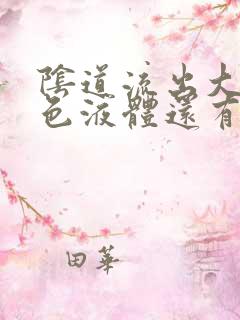 陰道流出大
色液體還有
田華